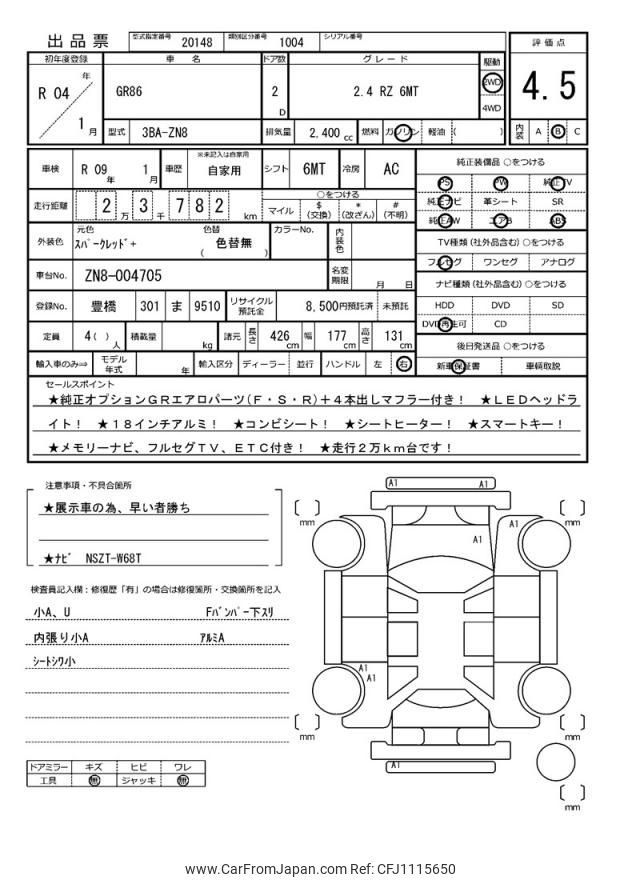 出品票
型式指定番号 20148 類別区分番号 1004 シリアル番号
初年度登録 車名 ドア数 グレード 駆動 評価点
R 04 年 1 月
GR86 2 D 2.4 RZ 6MT 2WD 4WD 4.5
型式 3BA-ZN8 排気量 2,400 cc 燃料 ガソリン 軽油 ( ) 内装 A B C
車検 R 09 年 1 月 車歴 ※未記入は自家用 自家用 シフト 6MT 冷房 AC
純正装備品 ○をつける
PS PW 純正TV
純正ナビ 革シート SR
純正AW エアB ABS
走行距離 2 万 3 千 7 8 2 km
○をつける
マイル $ (交換) * (改ざん) # (不明)
TV種類 (社外品含む) ○をつける
フルセグ ワンセグ アナログ
外装色 元色 スパークレッド+ 色替 ( 色替無 ) カラーNo. 内装色
ナビ種類 (社外品含む) ○をつける
HDD DVD SD
DVD再生可 CD
車台No. ZN8-004705 名変期限 月 日
登録No. 豊橋 301 ま 9510 リサイクル預託金 8,500円預託済 未預託
定員 4( ) 人 積載量 kg 諸元 長さ 426 cm 幅 177 cm 高さ 131 cm
後日発送品 ○をつける
新車保証書 車輌取説
輸入車のみ⇒ モデル年式 年 輸入区分 ディーラー 並行 ハンドル 左 右
セールスポイント
★純正オプションGRエアロパーツ(F・S・R)+4本出しマフラー付き! ★LEDヘッドラ
イト! ★18インチアルミ! ★コンビシート! ★シートヒーター! ★スマートキー!
★メモリーナビ、フルセグTV、ETC付き! ★走行2万km台です!
注意事項・不具合箇所
★展示車の為、早い者勝ち
★ナビ NSZT-W68T
検査員記入欄:修復歴「有」の場合は修復箇所・交換箇所を記入
小A、U Fバンパー下スリ
内張り小A アルミA
シートシワ小
ドアミラー キズ ヒビ ワレ
工具 無 ジャッキ 無
A1 A1
A1
A1
A1
A1
A1
mm
mm
mm
mm
mm
www.CarFromJapan.com Ref: CFJ1115650